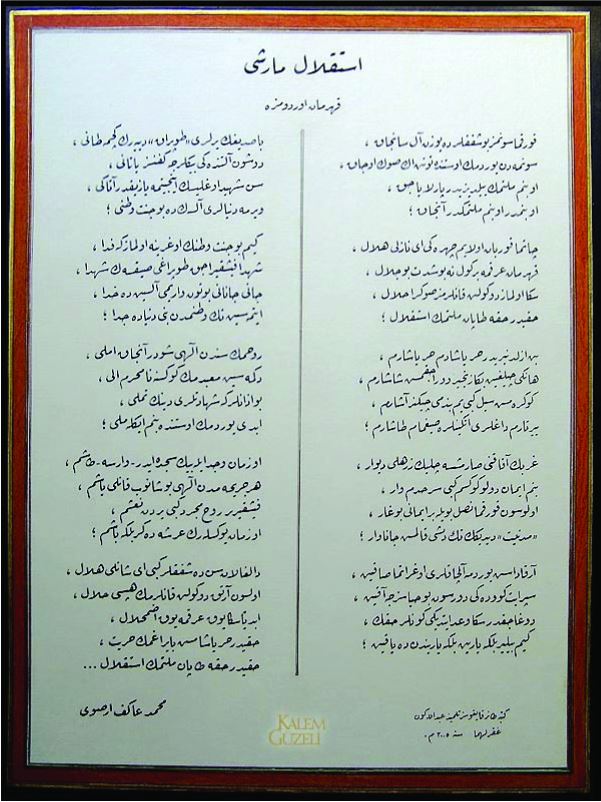 استقلال مارشی
قهرمان اوردومزه
قورقما سونمز بو شفقلرده یوزن آل سانجاق ،
سونمه‌دن یوردمك اوستنده توتن اك صوك اوجاق ،
او بنم ملتمك ییلدیزیدر پارلایاجق ،
او بنمدر او بنم ملتمكدر آنجاق ؛
چاتما قوربان اولایم چهره‌كی ای نازلی هلال ،
قهرمان عرقمه بر كول نه بو شدت بو جلال ،
سكا اولماز دوكولن قانلرمز صوكرا حلال ،
حقیدر حقه طاپان ملتمك استقلال ؛
بن ازلدنبریدر حر یاشادم حر یاشارم ،
هانكی چیلغین بكا زنجیر ووراجقمش شاشارم ،
كوكره‌مش سیل كبی‌یم بندمی چیكنر آشارم ،
ییرتارم داغلری انكینلره صیغمام طاشارم ؛
غربك آفاقنی صارمشسه چلیك زرهلی دیوار ،
بنم ایمان دولو كوكسم كبی سرحدم وار ،
اولوسون قورقما نصل بویله بر ایمانی بوغار ،
«مدنیت» دیدیكك تك دیشی قالمش جاناوار ؛
آرقاداش یوردمه آلچاقلری اوغراتما صاقین ،
سپر ایت كوده‌كی دورسون بو حیاسزجه آقین ،
دوغاجقدر سكا وعد ایتدیكی كونلر حقك ،
كیم بیلیر بلكه یارین بلكه یاریندن ده یاقین ؛
باصدیغك یرلری «طوپراق» دییه‌رك كچمه طانی ،
دوشون آلتنده‌كی بیكلرجه كفنسز یاتانی ،
سن شهید اوغلیسك اینجیتمه یازیقدر آتاكی ،
ویرمه دنیالری آلسه‌ك ده بو جنت وطنی ؛
كیم بو جنت وطنك اوغرینه اولماز كه فدا ،
شهدا فیشقیراجق طوپراغی صیقسه‌ك شهدا ،
جانی جانانی بوتون واریمی آلسین ده خدا ،
ایتمه‌سین تك وطنمدن بنی دنیاده جدا ؛
روحمك سندن الهی شودر آنجاق املی ،
دكمه‌سین معبدمك كوكسنه نامحرم الی ،
بو اذانلر كه شهادتلری دینك تملی ،
ابدی یوردمك اوستنده بنم ایكله‌ملی ؛
او زمان وجد ایله بیك سجده ایدر ــ وارسه ــ طاشم ،
هر جریحه‌مدن الهی بوشانوب قانلی یاشم ،
فیشقیریر روح مجرد كبی یردن نعشم ،
او زمان یوكسله‌رك عرشه دكر بلكه باشم ؛
دالغالان سن ده شفقلر كبی ای شانلی هلال ،
اولسون آرتق دوكولن قانلرمك هپسی حلال ،
ابدیا سكا یوق عرقمه یوق اضمحلال ،
حقیدر حر یاشامش بایراغمك حریت ،
حقیدر حقه طاپان ملتمك استقلال ...
محمد عاكف ارصوی
غفر لهما سنه ٢٠٠٥ م.
KALEM
GÜZELİ